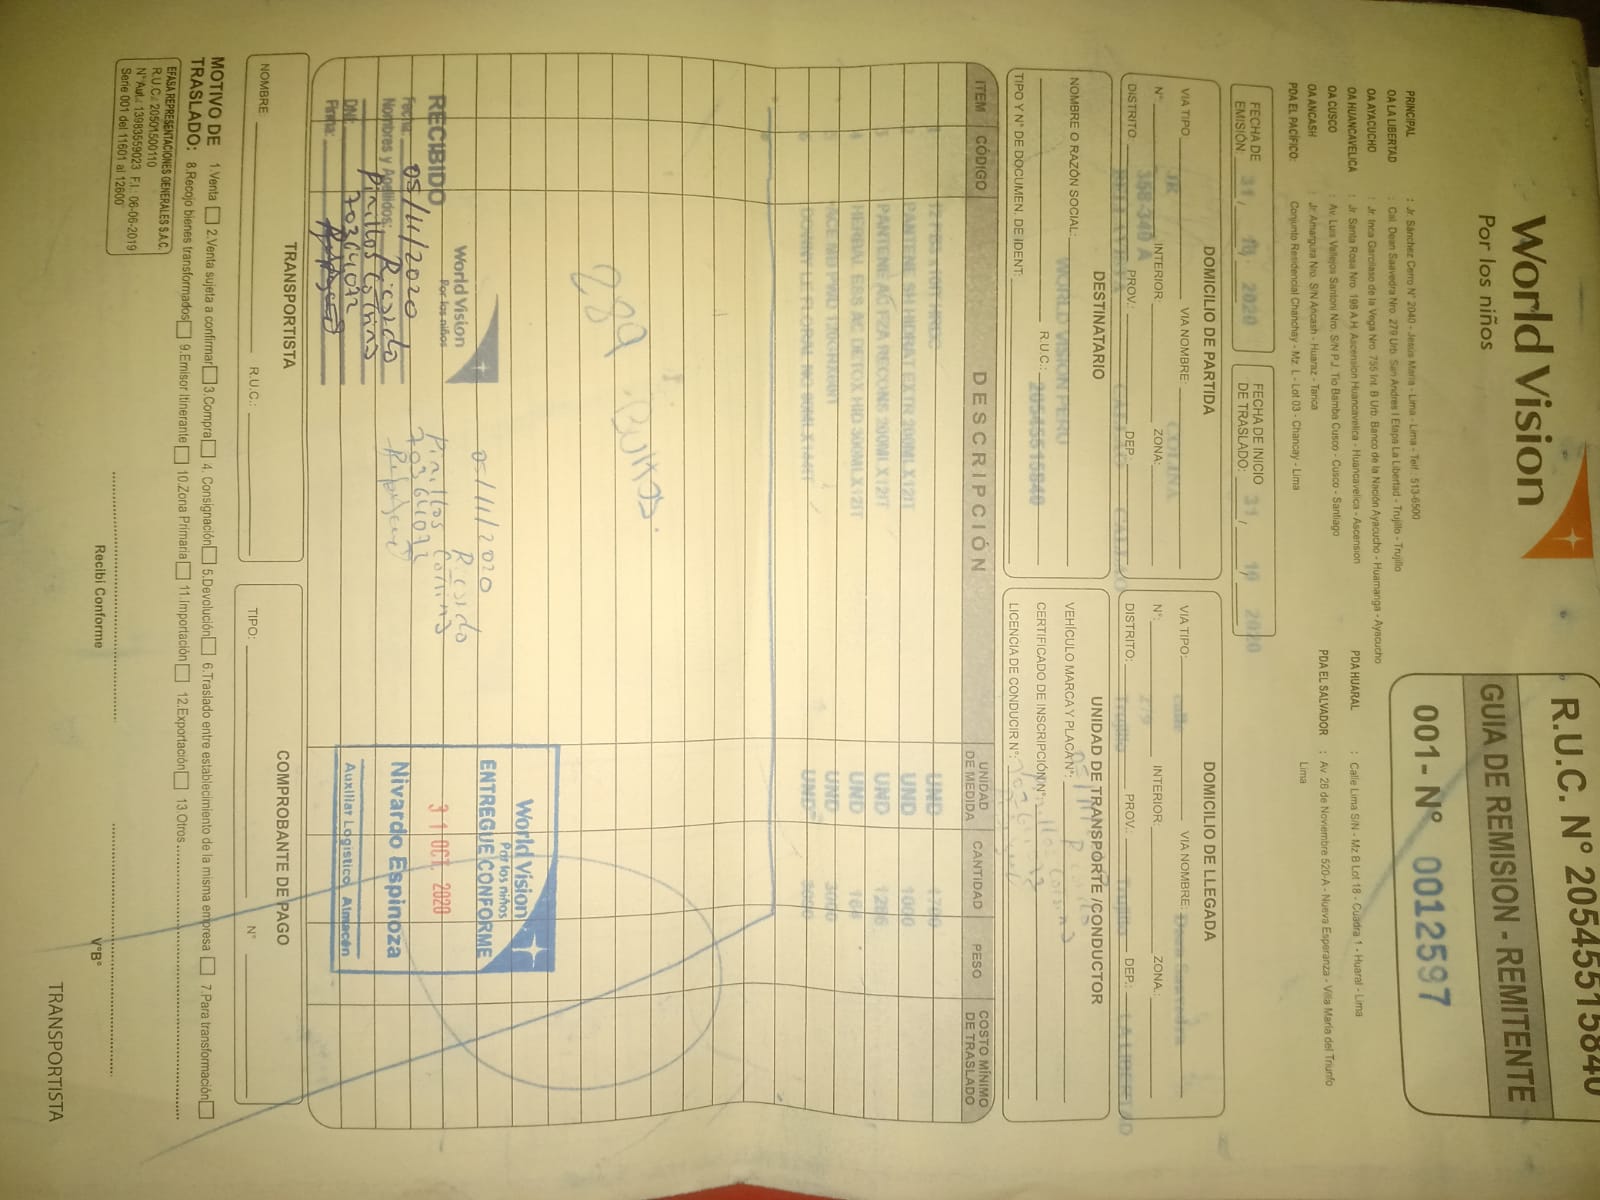 World Vision
Por los niños
R.U.C. N° 20545515840
GUIA DE REMISION - REMITENTE
001- N° 0012597
PRINCIPAL : Jr. Sánchez Cerro N° 2040 - Jesús María - Lima - Lima - Telf.: 513-6500
OA LA LIBERTAD : Cal. Dean Saavedra Nro. 279 Urb. San Andres I Etapa La Libertad - Trujillo - Trujillo
OA AYACUCHO : Jr. Inca Garcilaso de la Vega Nro. 755 Int. B Urb. Banco de la Nación Ayacucho - Huamanga - Ayacucho
OA HUANCAVELICA : Jr. Santa Rosa Nro. 198 A.H. Ascension Huancavelica - Huancavelica - Ascension
OA CUSCO : Av. Luis Vallejos Santoni Nro. S/N P.J. Tio Bamba Cusco - Cusco - Santiago
OA ANCASH : Jr. Amargura Nro. S/N Ancash - Huaraz - Tarica
PDA EL PACÍFICO: Conjunto Residencial Chanchay - Mz. L - Lot 03 - Chancay - Lima
PDA HUARAL : Calle Lima S/N - Mz B Lot 18 - Cuadra 1 - Huaral - Lima
PDA EL SALVADOR : Av. 28 de Noviembre 520-A - Nueva Esperanza - Villa María del Triunfo
Lima
FECHA DE EMISIÓN: 31, 10, 2020
FECHA DE INICIO DE TRASLADO: 31, 10 2020
DOMICILIO DE PARTIDA
VIA TIPO JR VIA NOMBRE: COLINA
N°: INTERIOR: ZONA:
DISTRITO: BELLAVISTA PROV.: CALLAO DEP.: CALLAO
DOMICILIO DE LLEGADA
VIA TIPO: calle VIA NOMBRE: Dean Saavedra
N°: 279 INTERIOR: ZONA.:
DISTRITO: Trujillo PROV.: Trujillo DEP.: LA LIBERTAD
DESTINATARIO
NOMBRE O RAZÓN SOCIAL: WORLD VISION PERU
R.U.C.: 20545515840
TIPO Y N° DE DOCUMEN. DE IDENT:
UNIDAD DE TRANSPORTE /CONDUCTOR
VEHÍCULO MARCA Y PLACA N°:
CERTIFICADO DE INSCRIPCIÓN N°:
LICENCIA DE CONDUCIR N°:
ITEM CÓDIGO DESCRIPCIÓN UNIDAD DE MEDIDA CANTIDAD PESO COSTO MÍNIMO DE TRASLADO
UND
PANTENE SH HIDRAT EXTR 200MLX12IT UND 1000
PANTENE AC FZA RECONS 200MLX12IT UND
HERBAL ESS AC DETOX HID 300MLX12IT UND
UND
UND
289 Bultos.
World Vision
Por los niños
RECIBIDO
Fecha: 05/11/2020
Nombres y Apellidos: Ricardo
Pinillos Comina
DNI: 70364072
Firma:
05/11/2020
Ricardo
Pinillos Comina
70364072
World Vision
Por los niños
ENTREGUE CONFORME
31 OCT. 2020
Nivardo Espinoza
Auxiliar Logístico Almacén
TRANSPORTISTA
NOMBRE R.U.C.:
COMPROBANTE DE PAGO
TIPO: N°
MOTIVO DE TRASLADO:
1.Venta 2.Venta sujeta a confirmar 3.Compra 4. Consignación 5.Devolución 6.Traslado entre establecimiento de la misma empresa 7.Para transformación
8.Recojo bienes transformados 9.Emisor Itinerante 10.Zona Primaria 11.Importación 12.Exportación 13.Otros
EFASA REPRESENTACIONES GENERALES S.A.C.
R.U.C.: 20501500110
N°Aut.: 13983559023 F.I.: 06-06-2019
Serie 001 del 11601 al 12600
Recibí Conforme
V°B°
TRANSPORTISTA